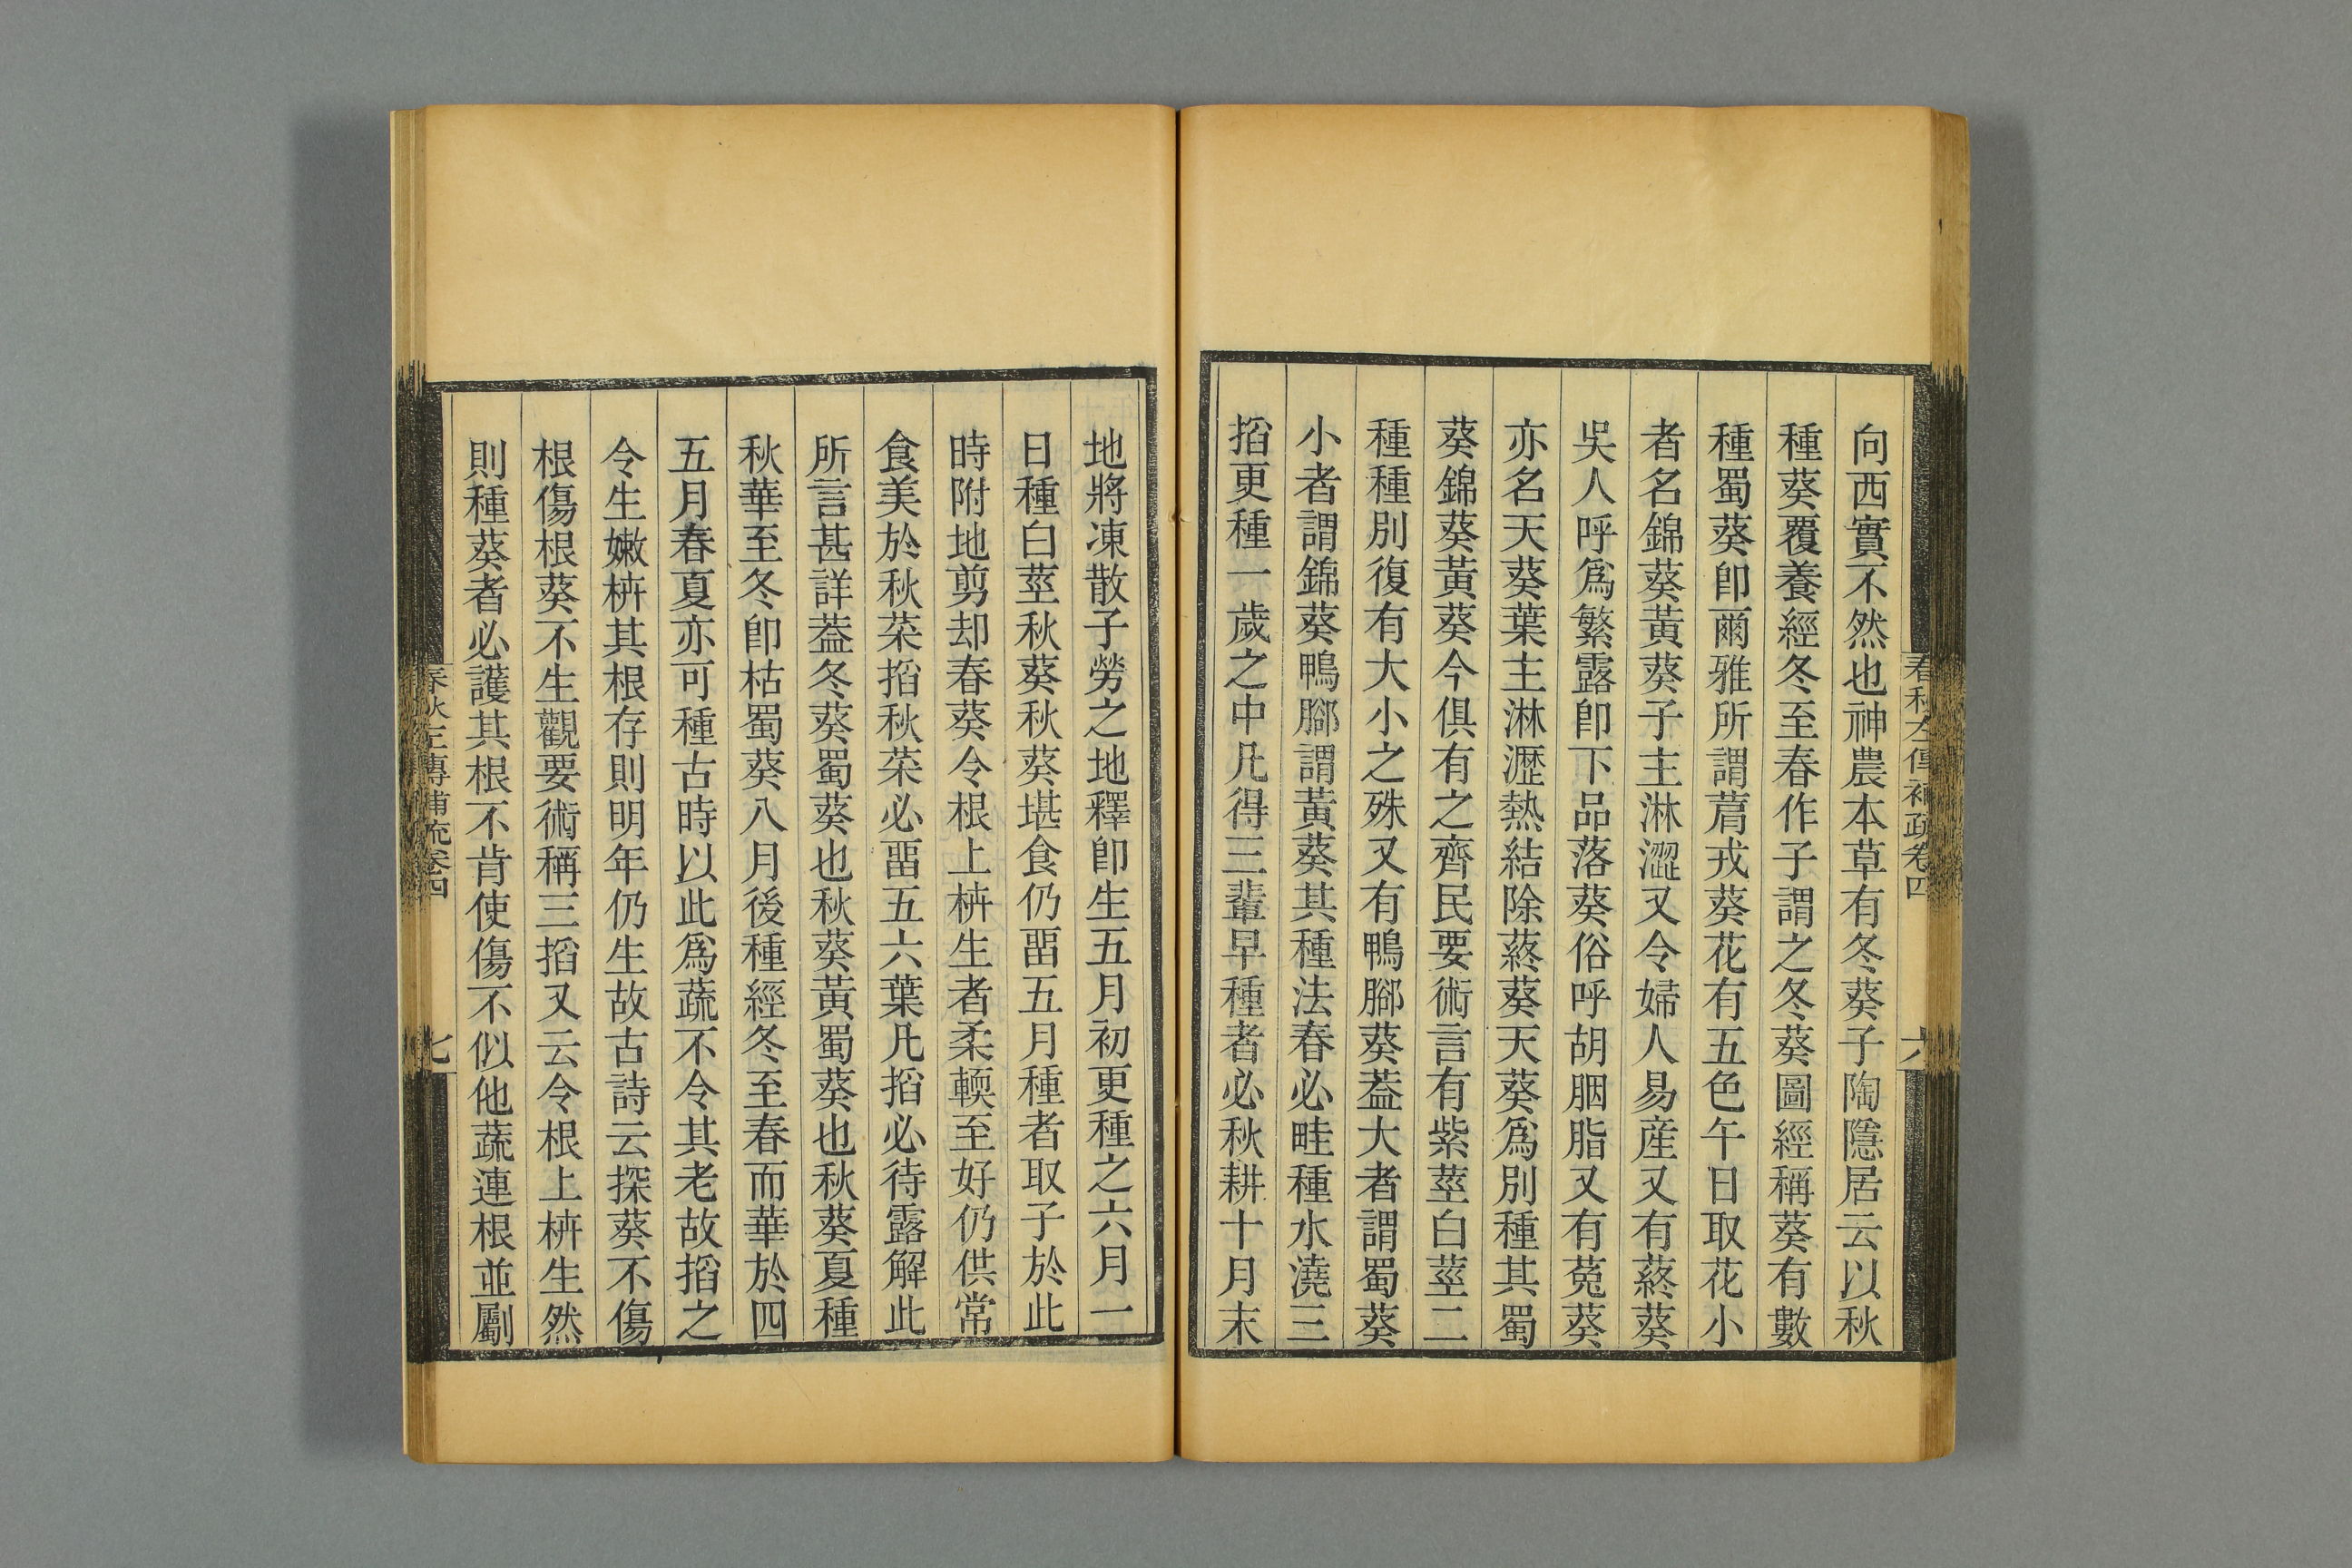 向西實不然也神農本草有冬葵子陶隱居云以秋
種葵覆養經冬至春作子謂之冬葵圖經稱葵有數
種蜀葵卽爾雅所謂菺戎葵花有五色午日取花小
者名錦葵黃葵子主淋澀又令婦人易産又有蔠葵
吳人呼爲繁露卽下品落葵俗呼胡胭脂又有菟葵
亦名天葵葉主淋瀝熱結除蔠葵天葵爲別種其蜀
葵錦葵黃葵今俱有之齊民要術言有紫莖白莖二
種種別復有大小之殊又有鴨腳葵葢大者謂蜀葵
小者謂錦葵鴨腳謂黃葵其種法春必畦種水澆三
掐更種一歲之中凡得三輩早種者必秋耕十月末
春秋左傳補疏卷四 六
地將凍散子勞之地釋卽生五月初更種之六月一
日種白莖秋葵秋葵堪食仍畱五月種者取子於此
時附地剪却春葵令根上枿生者柔輭至好仍供常
食美於秋菜掐秋菜必畱五六葉凡掐必待露解此
所言甚詳葢冬葵蜀葵也秋葵黃蜀葵也秋葵夏種
秋華至冬卽枯蜀葵八月後種經冬至春而華於四
五月春夏亦可種古時以此爲蔬不令其老故掐之
令生嫩枿其根存則明年仍生故古詩云採葵不傷
根傷根葵不生觀要術稱三掐又云令根上枿生然
則種葵者必護其根不肯使傷不似他蔬連根並劚
春秋左傳補疏卷四 七